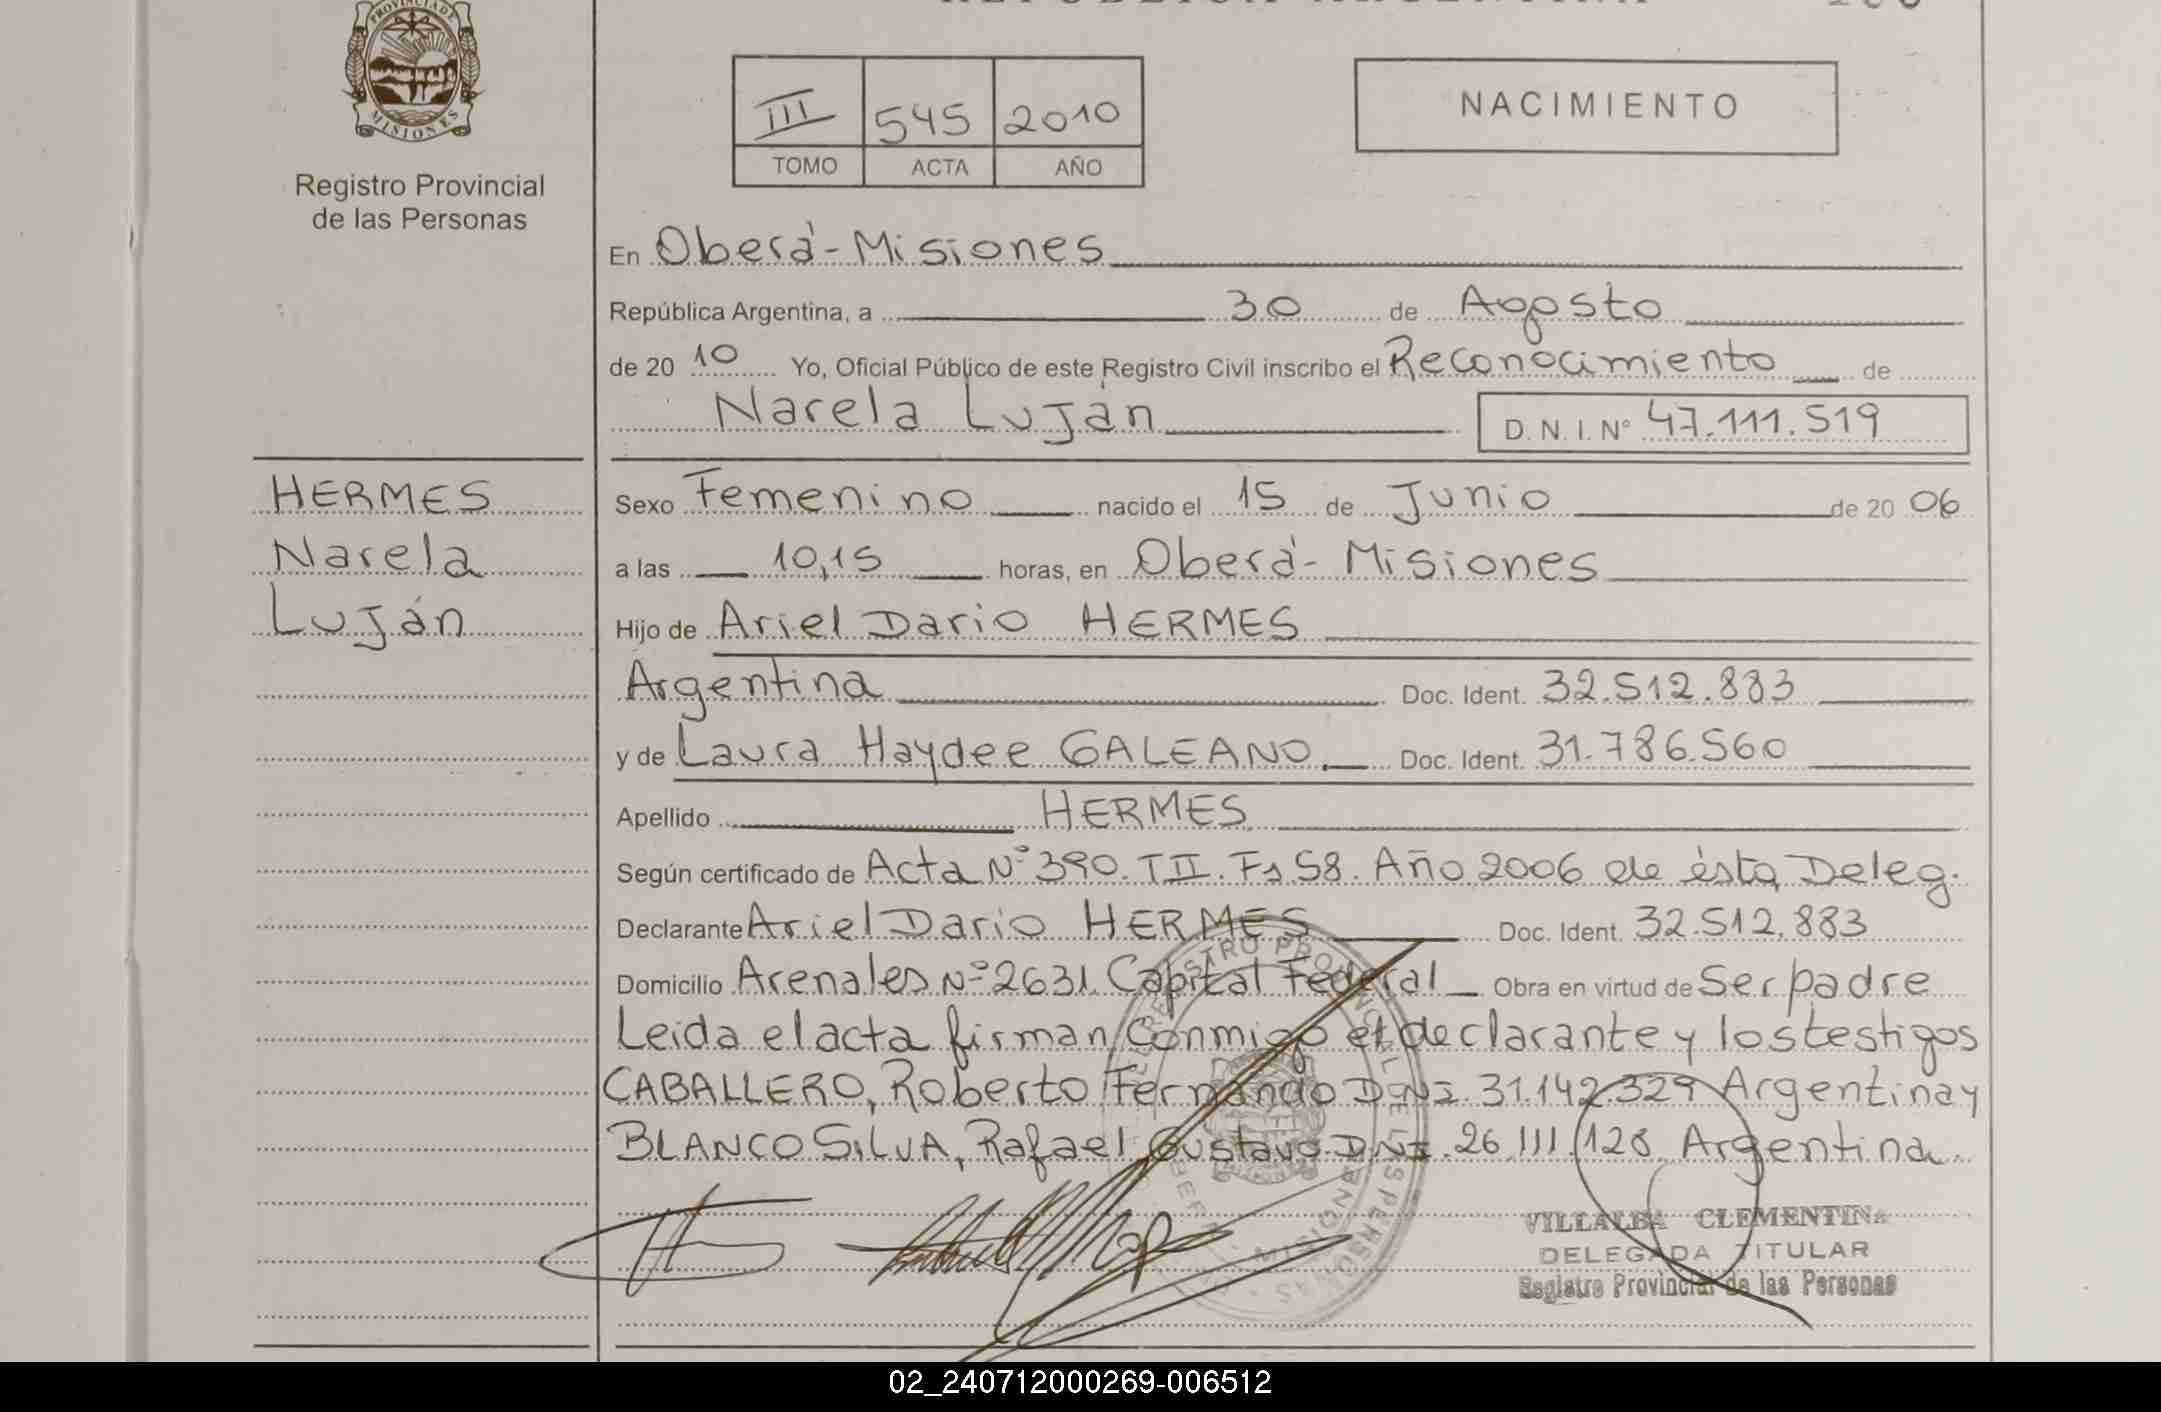 PROVINCIA DE
MISIONES
Registro Provincial
de las Personas
REPUBLICA ARGENTINA
III 545 2010
TOMO ACTA AÑO
NACIMIENTO
En Oberá - Misiones
República Argentina, a 30 de Agosto
de 20 10 Yo, Oficial Público de este Registro Civil inscribo el Reconocimiento de
Narela Luján D.N.I. Nº 47.111.519
HERMES
Narela
Luján
Sexo Femenino nacido el 15 de Junio de 20 06
a las 10,15 horas, en Oberá - Misiones
Hijo de Ariel Dario HERMES
Argentina Doc. Ident. 32.512.883
y de Laura Haydee GALEANO Doc. Ident. 31.786.560
Apellido HERMES
Según certificado de Acta Nº 390. T II. Fs 58. Año 2006 de ésta Deleg.
Declarante Ariel Dario HERMES Doc. Ident. 32.512.883
Domicilio Arenales Nº 2631 Capital Federal Obra en virtud de Ser padre
Leida el acta firman conmigo el declarante y los testigos
CABALLERO, Roberto Fernando DNI. 31.142.329 Argentina y
BLANCO SILVA, Rafael Gustavo DNI. 26.111.128 Argentina.
VILLALBA CLEMENTINA
DELEGADA TITULAR
Registro Provincial de las Personas
02_240712000269-006512